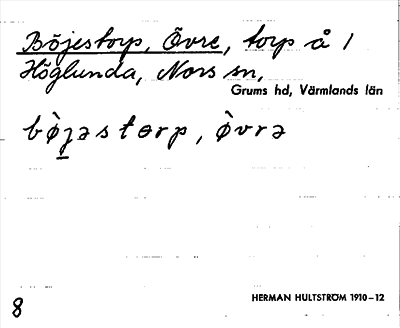 Böjestorp, Övre, torp å 1
Höglunda, Nors sn,
Grums hd, Värmlands län
bø̀ȷəstɵrp, ø̀vrə
8
HERMAN HULTSTRÖM 1910–12